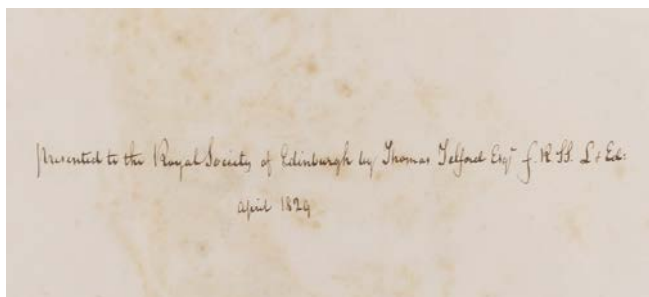 presented to the Royal Society of Edinburgh by Thomas Telford Esqr f. R SS. L & Ed:
April 1829